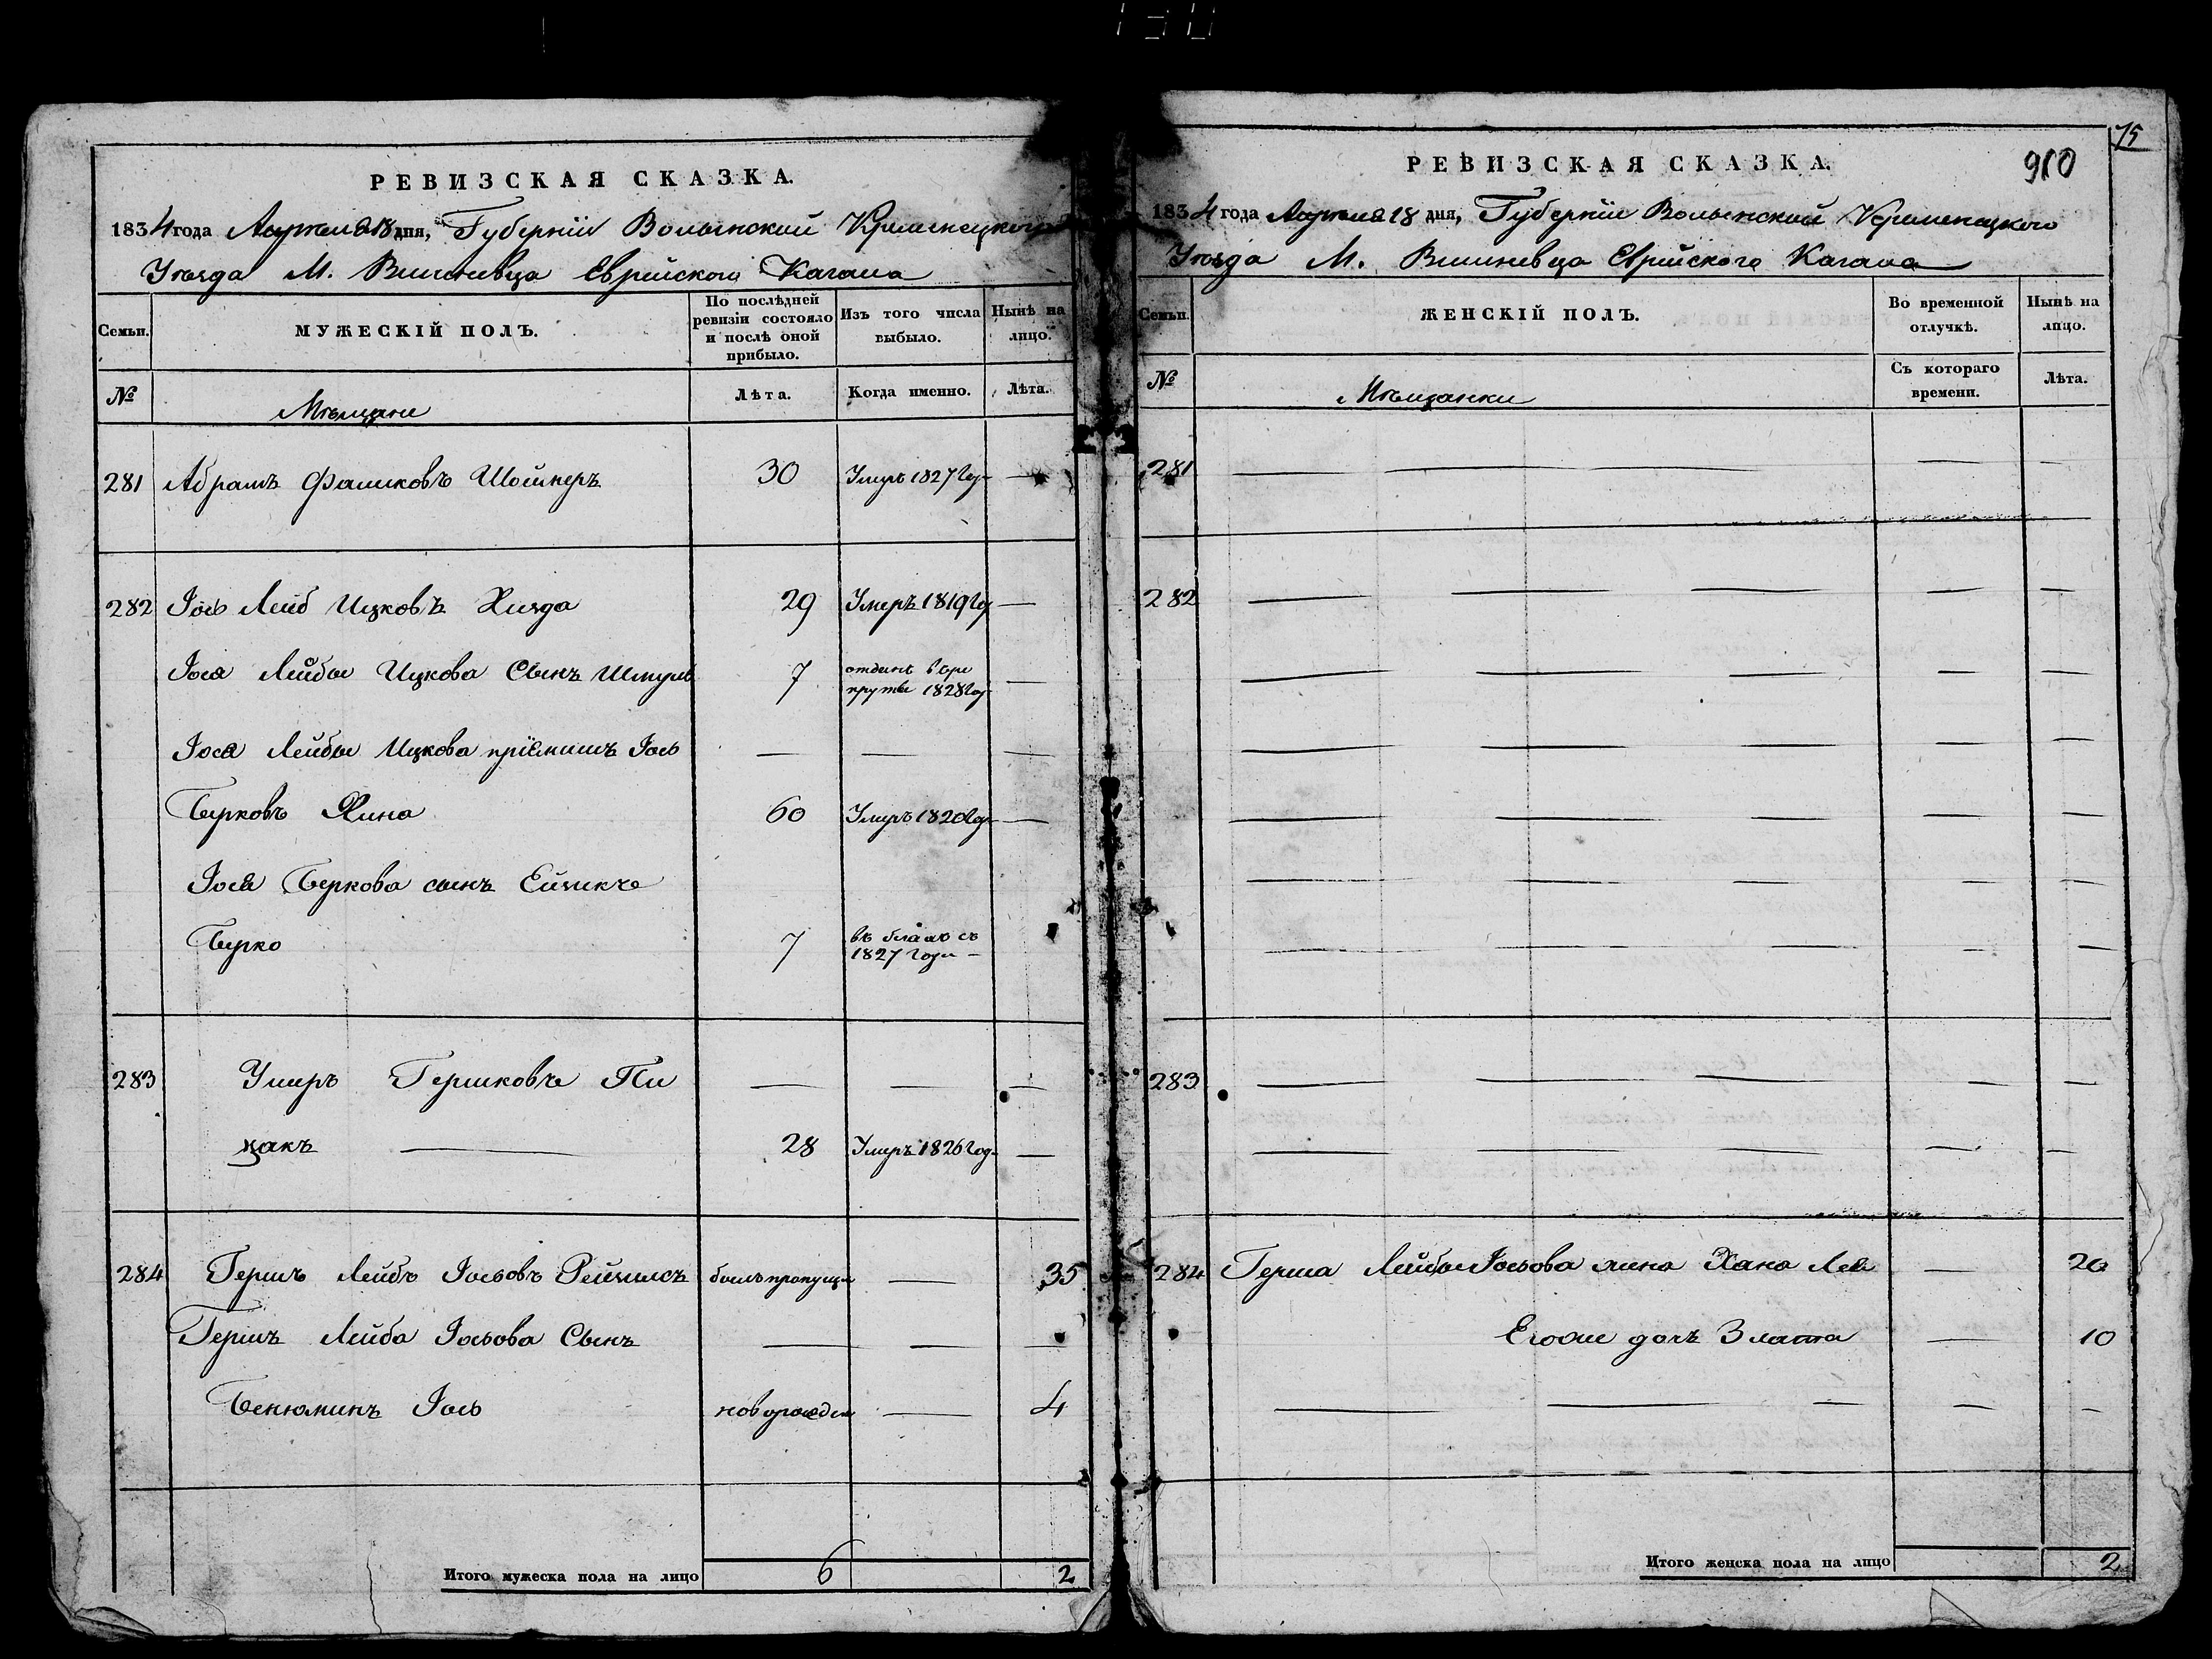 РЕВИЗСКАЯ СКАЗКА.
1834 года Апреля 18 дня, Губерніи Волынской Кременецкого
Уѣзда М. Вишневца Еврейского Кагала
Семьи. МУЖЕСКІЙ ПОЛЪ. По послѣдней ревизіи состояло и послѣ оной прибыло. Изъ того числа выбыло. Нынѣ на лицо.
№ Мѣщане Лѣта. Когда именно. Лѣта.
281 Абрамъ Фаликовъ Шойнеръ 30 Умеръ 1827 Год —
282 Іось Лейб Ицковъ 29 Умеръ 1819 Год —
Іося Лейбы Ицкова Сынъ Шмуль 7 отданъ в рекруты 1828 Год —
Іося Лейбы Ицкова пріёмышъ Іось — — —
Берковъ 60 Умеръ 1820 Год —
Іося Беркова сынъ
Берко 7 въ бѣгахъ съ 1827 Года —
283 Умеръ Гершковъ Пи — — —
цакъ — 28 Умеръ 1826 Год —
284 Гершъ Лейбъ Іосьовъ былъ пропущен — 35
Гершъ Лейба Іосьова Сынъ — — —
Бенюминъ Іось новорожден — 4
Итого мужеска пола на лицо 6 2
75
910
РЕВИЗСКАЯ СКАЗКА.
1834 года Апреля 18 дня, Губерніи Волынской Кременецкого
Уѣзда М. Вишневца Еврейского Кагала
Семьи. ЖЕНСКІЙ ПОЛЪ. Во временной отлучкѣ. Нынѣ на лицо.
№ Мѣщанки Съ котораго времени. Лѣта.
281 — — — —
282 — — — — —
— — — — —
— — — — —
— — — — —
— — — — —
— — — — —
283 — — — — —
— — — — —
284 Герша Лейбы Іосьова жена Хана Лея — 20
Егоже дочь Злата — 10
— — — — —
Итого женска пола на лицо 2